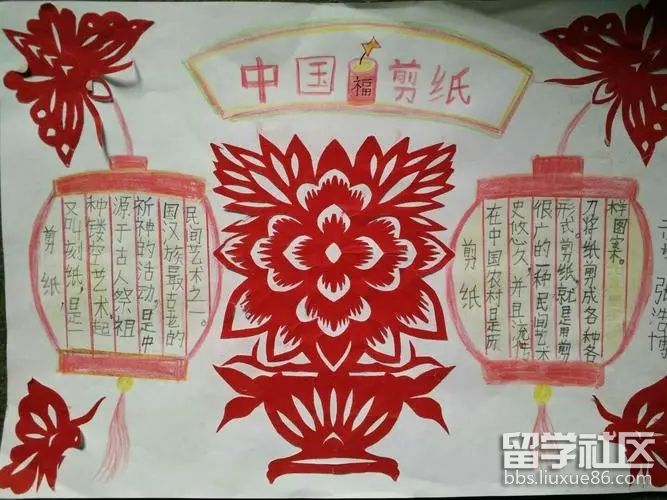 中国福剪纸
剪纸
又叫刻纸，是
种镂空艺术起
源于古人祭祖
祈神的活动，是中
国汉族最古老的
民间艺术之一。
剪纸
在中国农村是历
史悠久，并且流传
很广的一种民间艺术
形式。剪纸，就是用剪
刀将纸剪成各种各
样图案。
张浩博
留学社区
bbs.liuxue86.com